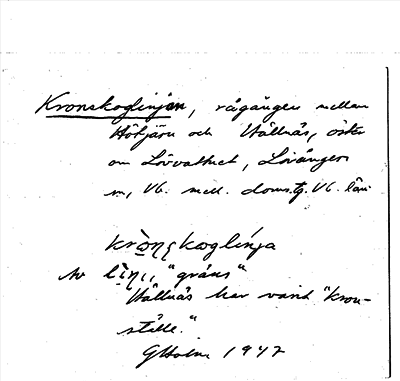 Kronskoglinjen, rågången mellan
Hötjärn och Hällnäs, öster
om Lövvattnet, Lövånger
sn, Vb. mell. doms.tg. Vb. län
krò̱nskoglínja
Av lì̱n, "gräns"
Hällnäs har varit "kron-
ställe."
GHolm 1947